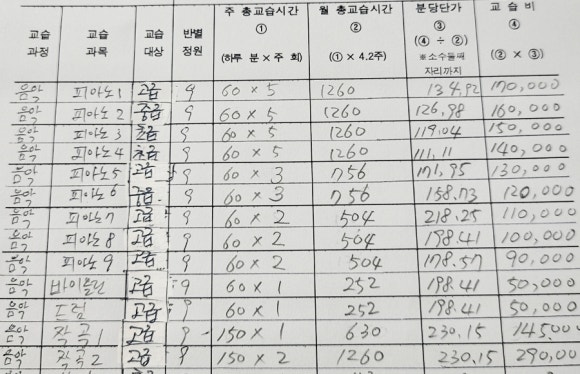 교습 과정 교습 과목 교습 대상 반별 정원 주 총교습시간 ① (하루 분×주 회) 월 총교습시간 ② (① × 4.2주) 분당단가 ③ (④ ÷ ②) ※소수둘째 자리까지 교 습 비 ④ (② × ③)
음악 피아노1 고급 9 60 × 5 1260 134.92 170,000
음악 피아노2 중급 9 60 × 5 1260 126.98 160,000
음악 피아노3 초급 9 60 × 5 1260 119.04 150,000
음악 피아노4 초급 9 60 × 5 1260 111.11 140,000
음악 피아노5 고급 9 60 × 3 756 171.95 130,000
음악 피아노6 중급 9 60 × 3 756 158.73 120,000
음악 피아노7 고급 9 60 × 2 504 218.25 110,000
음악 피아노8 고급 9 60 × 2 504 198.41 100,000
음악 피아노9 고급 9 60 × 2 504 178.57 90,000
음악 바이올린 고급 9 60 × 1 252 198.41 50,000
음악 드럼 고급 9 60 × 1 252 198.41 50,000
음악 작곡1 고급 9 150 × 1 630 230.15 145,000
음악 작곡2 고급 9 150 × 2 1260 230.15 290,000